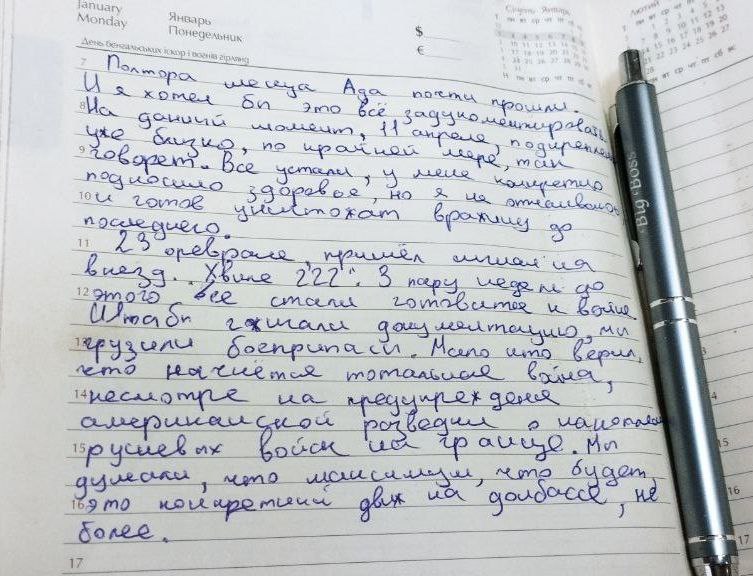 January
Monday
Январь
Понедельник
$
€
Січень Январь
Лютий
День бенгальських іскор і вогнів гірлянд
7 Полтора месеца Ада почти прошли.
И я хотел бы это всё задукоментировать
8 На данный момент, 11 апреля, подкрепление
уже близко, по крайней мере, так
9 говорят. Все устали, у меня конкретно
подкосило здоровье, но я не отчаиваюсь
10 и готов уничтожат вражину до
последнего.
11 23 февраля, пришёл сигнал на
выезд. "Хвиле 222". З пару недель до
12 этого все стали готовится к войне
Штабы документацию, мы
13 грузили боеприпасы. Мало кто верил,
что начнётся тотальная война,
14 несмотря на предупреждения
американской розведки о накоплен
15 русневых войск на границе. Мы
думали, что максимум, что будет,
16 это конкретный движ на долбассе, не
более.
17
Big Boss
15
16
17